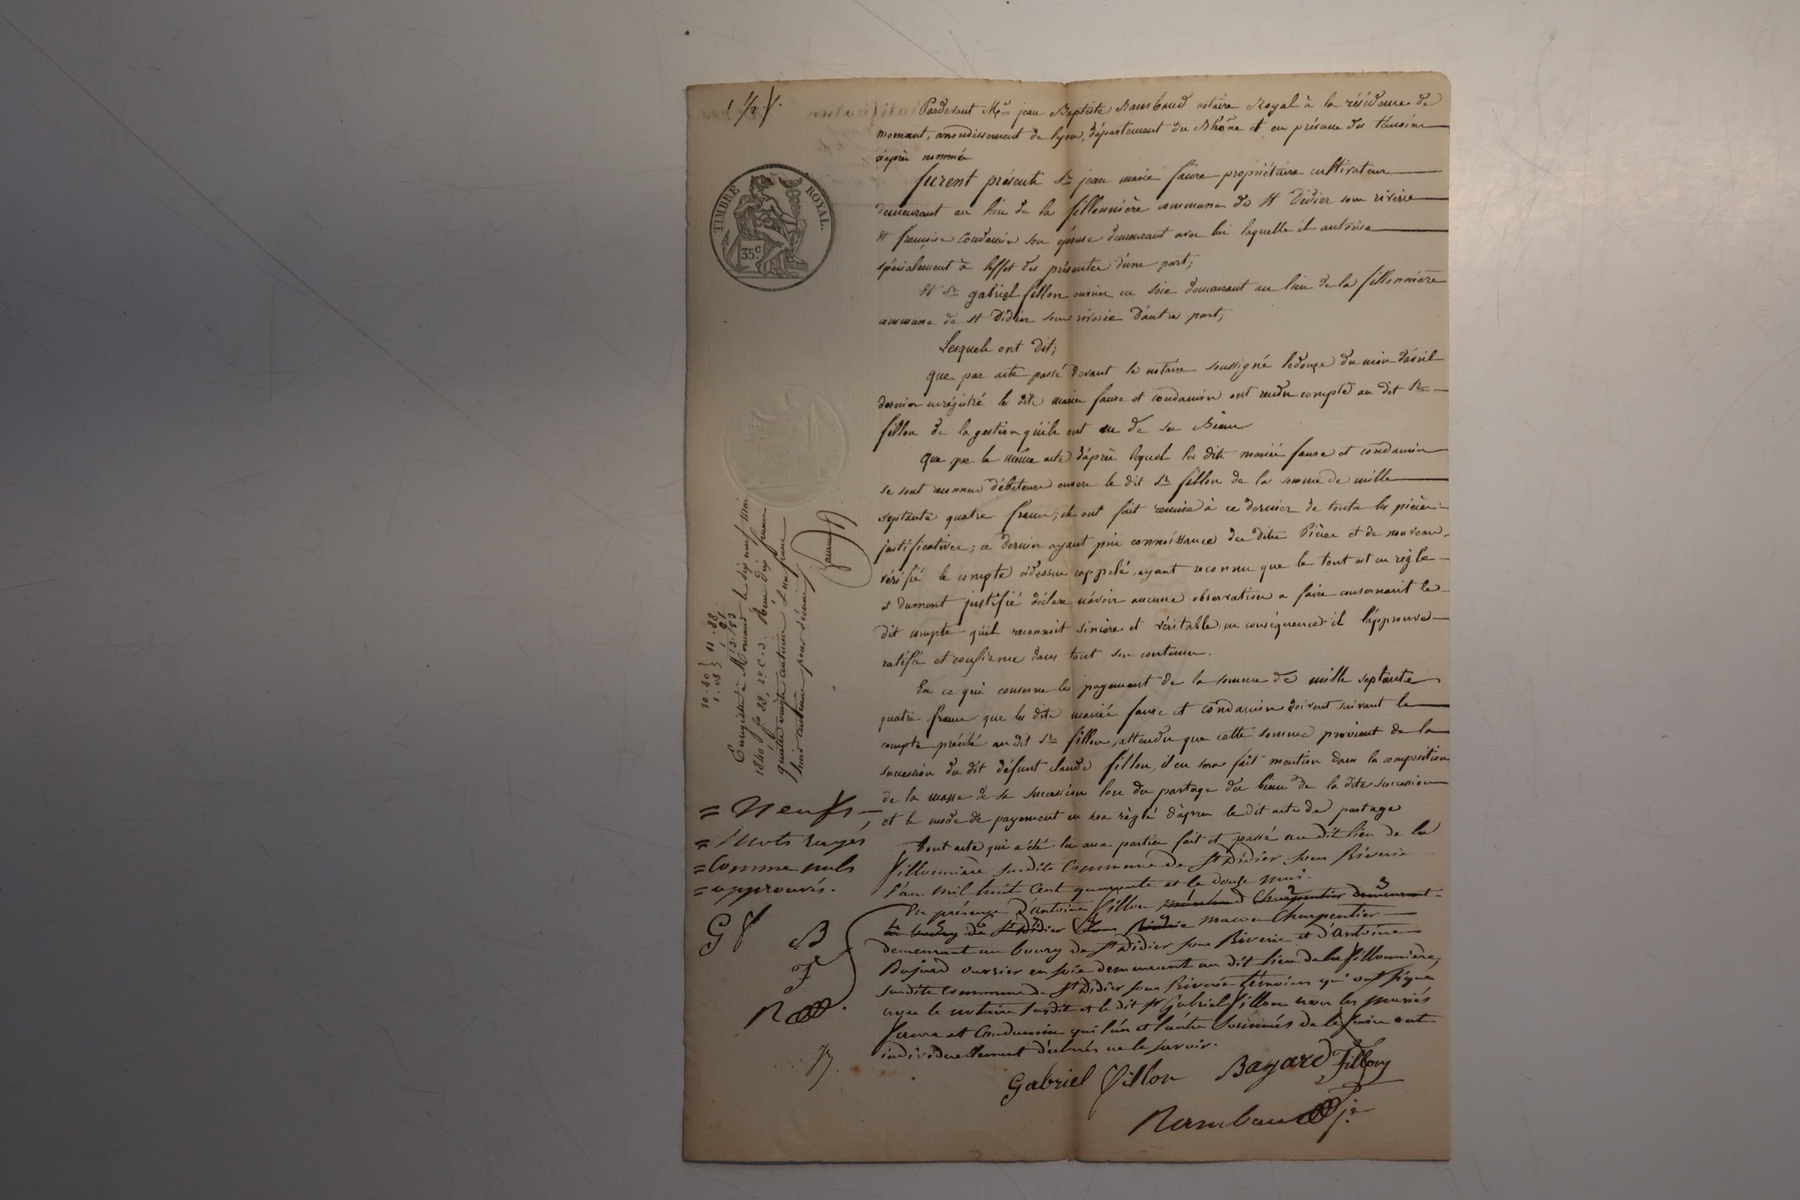 Pardevant Me jean Baptiste Rambaud notaire Royal à la résidence de
mornant, arrondissement de lyon, département du Rhône et en présence des témoins
ciaprès nommés
furent présents Sr jean marie faure propriétaire cultivateur
demeurant au lieu de la fillonnière commune de St Didier sous riverie
et francoise Condamin son épouse demeurant avec lui laquelle il autorise
spécialement à leffet des présentes d'une part;
et Sr gabriel fillon ouvrier en soie demeurant au lieu de la fillonnière
commune de St Didier sous riverie d'autre part;
Lesquels ont dit;
que par acte passé devant le notaire soussigné le douze du mois d'avril
dernier enregistré les dits mariés faure et condamin ont rendu compte au dit Sr
fillon de la gestion qu'ils ont eu de ses Biens
que par le même acte d'après lequel les dits mariés faure et condamin
se sont reconnus débiteurs envers le dit Sr fillon de la somme de mille
septante quatre francs, ils ont fait remise à ce dernier de toutes les pièces
justificatives; ce dernier ayant pris connoissance des dites Pièces et de nouveau
vérifié le compte cidessus rappelé, ayant reconnu que le tout est en règle
et dument justifié déclare n'avoir aucune observation a faire concernant le
dit compte qu'il reconnoit sincère et véritable en conséquence il l'approuve
ratifie et confirme dans tout son contenu.
En ce qui concerne le payement de la somme de mille septante
quatre francs que les dits mariés faure et condamin doivent suivant le
compte précité au dit Sr fillon, attendu que cette somme provient de la
succession du dit défunt claude fillon, il en sera fait mention dans la composition
de la masse de sa succession lors du partage des biens de la dite succession
et le mode de payement en sera règlé d'après le dit acte de partage
Dont acte qui a été lu aux parties fait et passé au dit lieu de la
fillonnière susdite Commune de St Didier sous Riverie
l'an mil huit cent quarante et le douze mai.
En présence d'Antoine fillon Charpentier demeurant
au bourg de St Didier sous Riverie maitre Charpentier
demeurant au bourg de St Didier sous Riverie et d'Antoine
Bajard ouvrier en soie demeurant au dit lieu de la fillonnière,
susdite Commune de St Didier sous Riverie témoins qui ont signé
avec le notaire susdit et le dit Sr Gabriel fillon non les mariés
faure et Condamin qui l'un et l'autre sommés de le faire ont
individuellement déclarés ne le savoir.
Gabriel fillon Bayard fillon
Rambaud je
TIMBRE ROYAL.
35c
Enregistré à Mornant le dix neuf mai
1840 fo 88, ro c. 3. Reçu dix francs
quatre vingts centimes & un franc
huit centimes pour décime
10.80
1.08
11.88
= Neufs
= Mots rayés
= Comme nuls
= approuvés.
G f
B
f
R